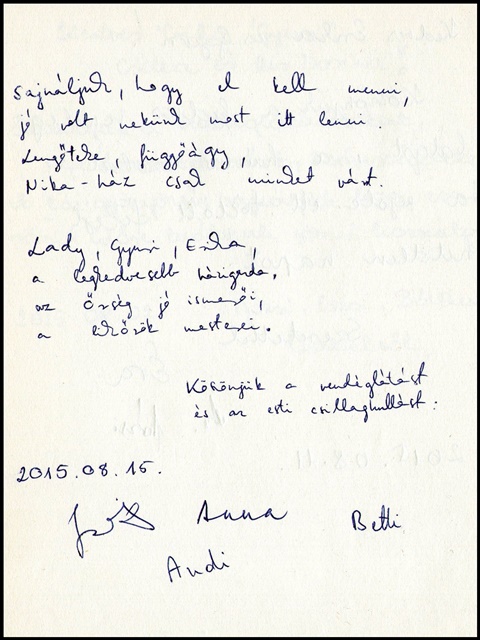 Sajnáljuk, hogy el kell menni
jó volt nekünk most itt lenni.
Lengőteke, függőágy,
Nika-ház csak minket várt.
Lady, Gyuri, Erika,
a legkedvesebb házigazda,
az Őrség jó ismerői,
a mesterei.
Köszönjük a vendéglátást
és az esti csillaghullást:
2015.08.15.
Anna
Betti
Andi